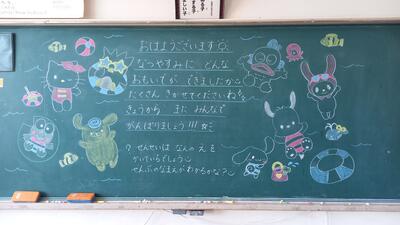 おはようございます
なつやすみに どんな
おもいでが できましたか
たくさん きかせてくださいね
きょうから また みんなで
がんばりましょう!!!
? せんせいは なんの えを
かいているでしょう
ぜんぶのなまえが わかるかな?